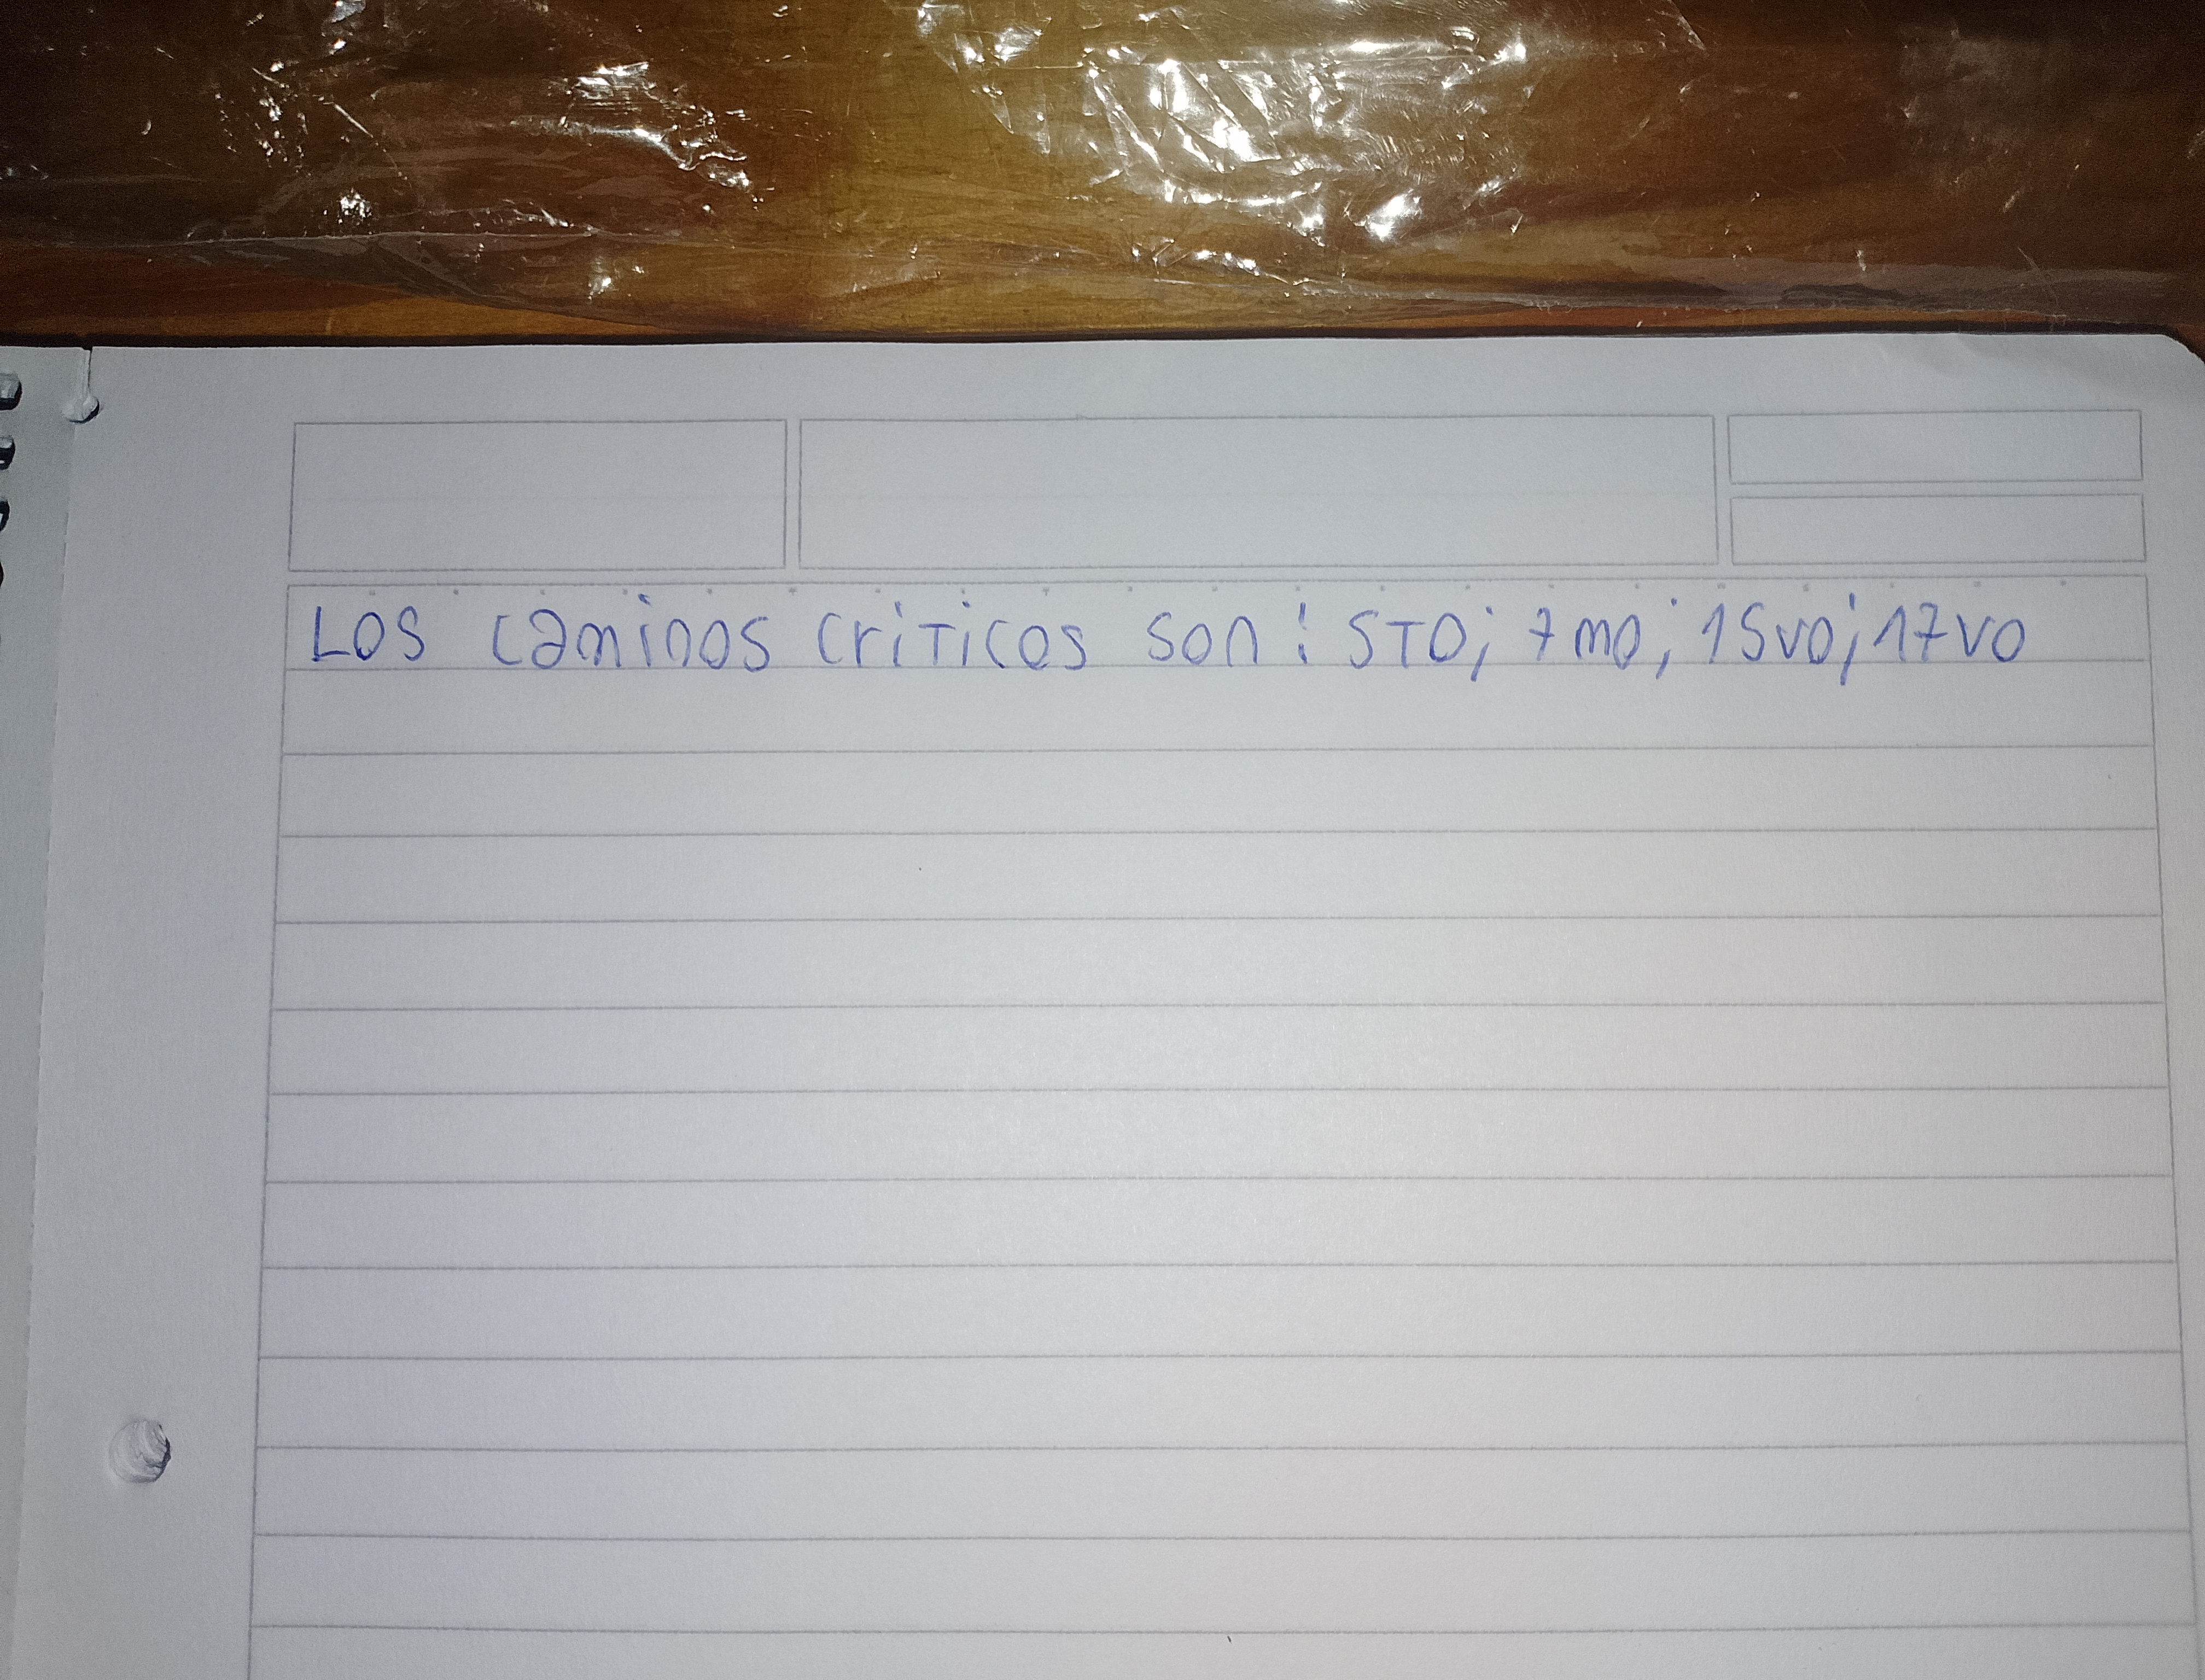 Los caminos criticos son: 5TO; 7mo; 15vo; 17vo